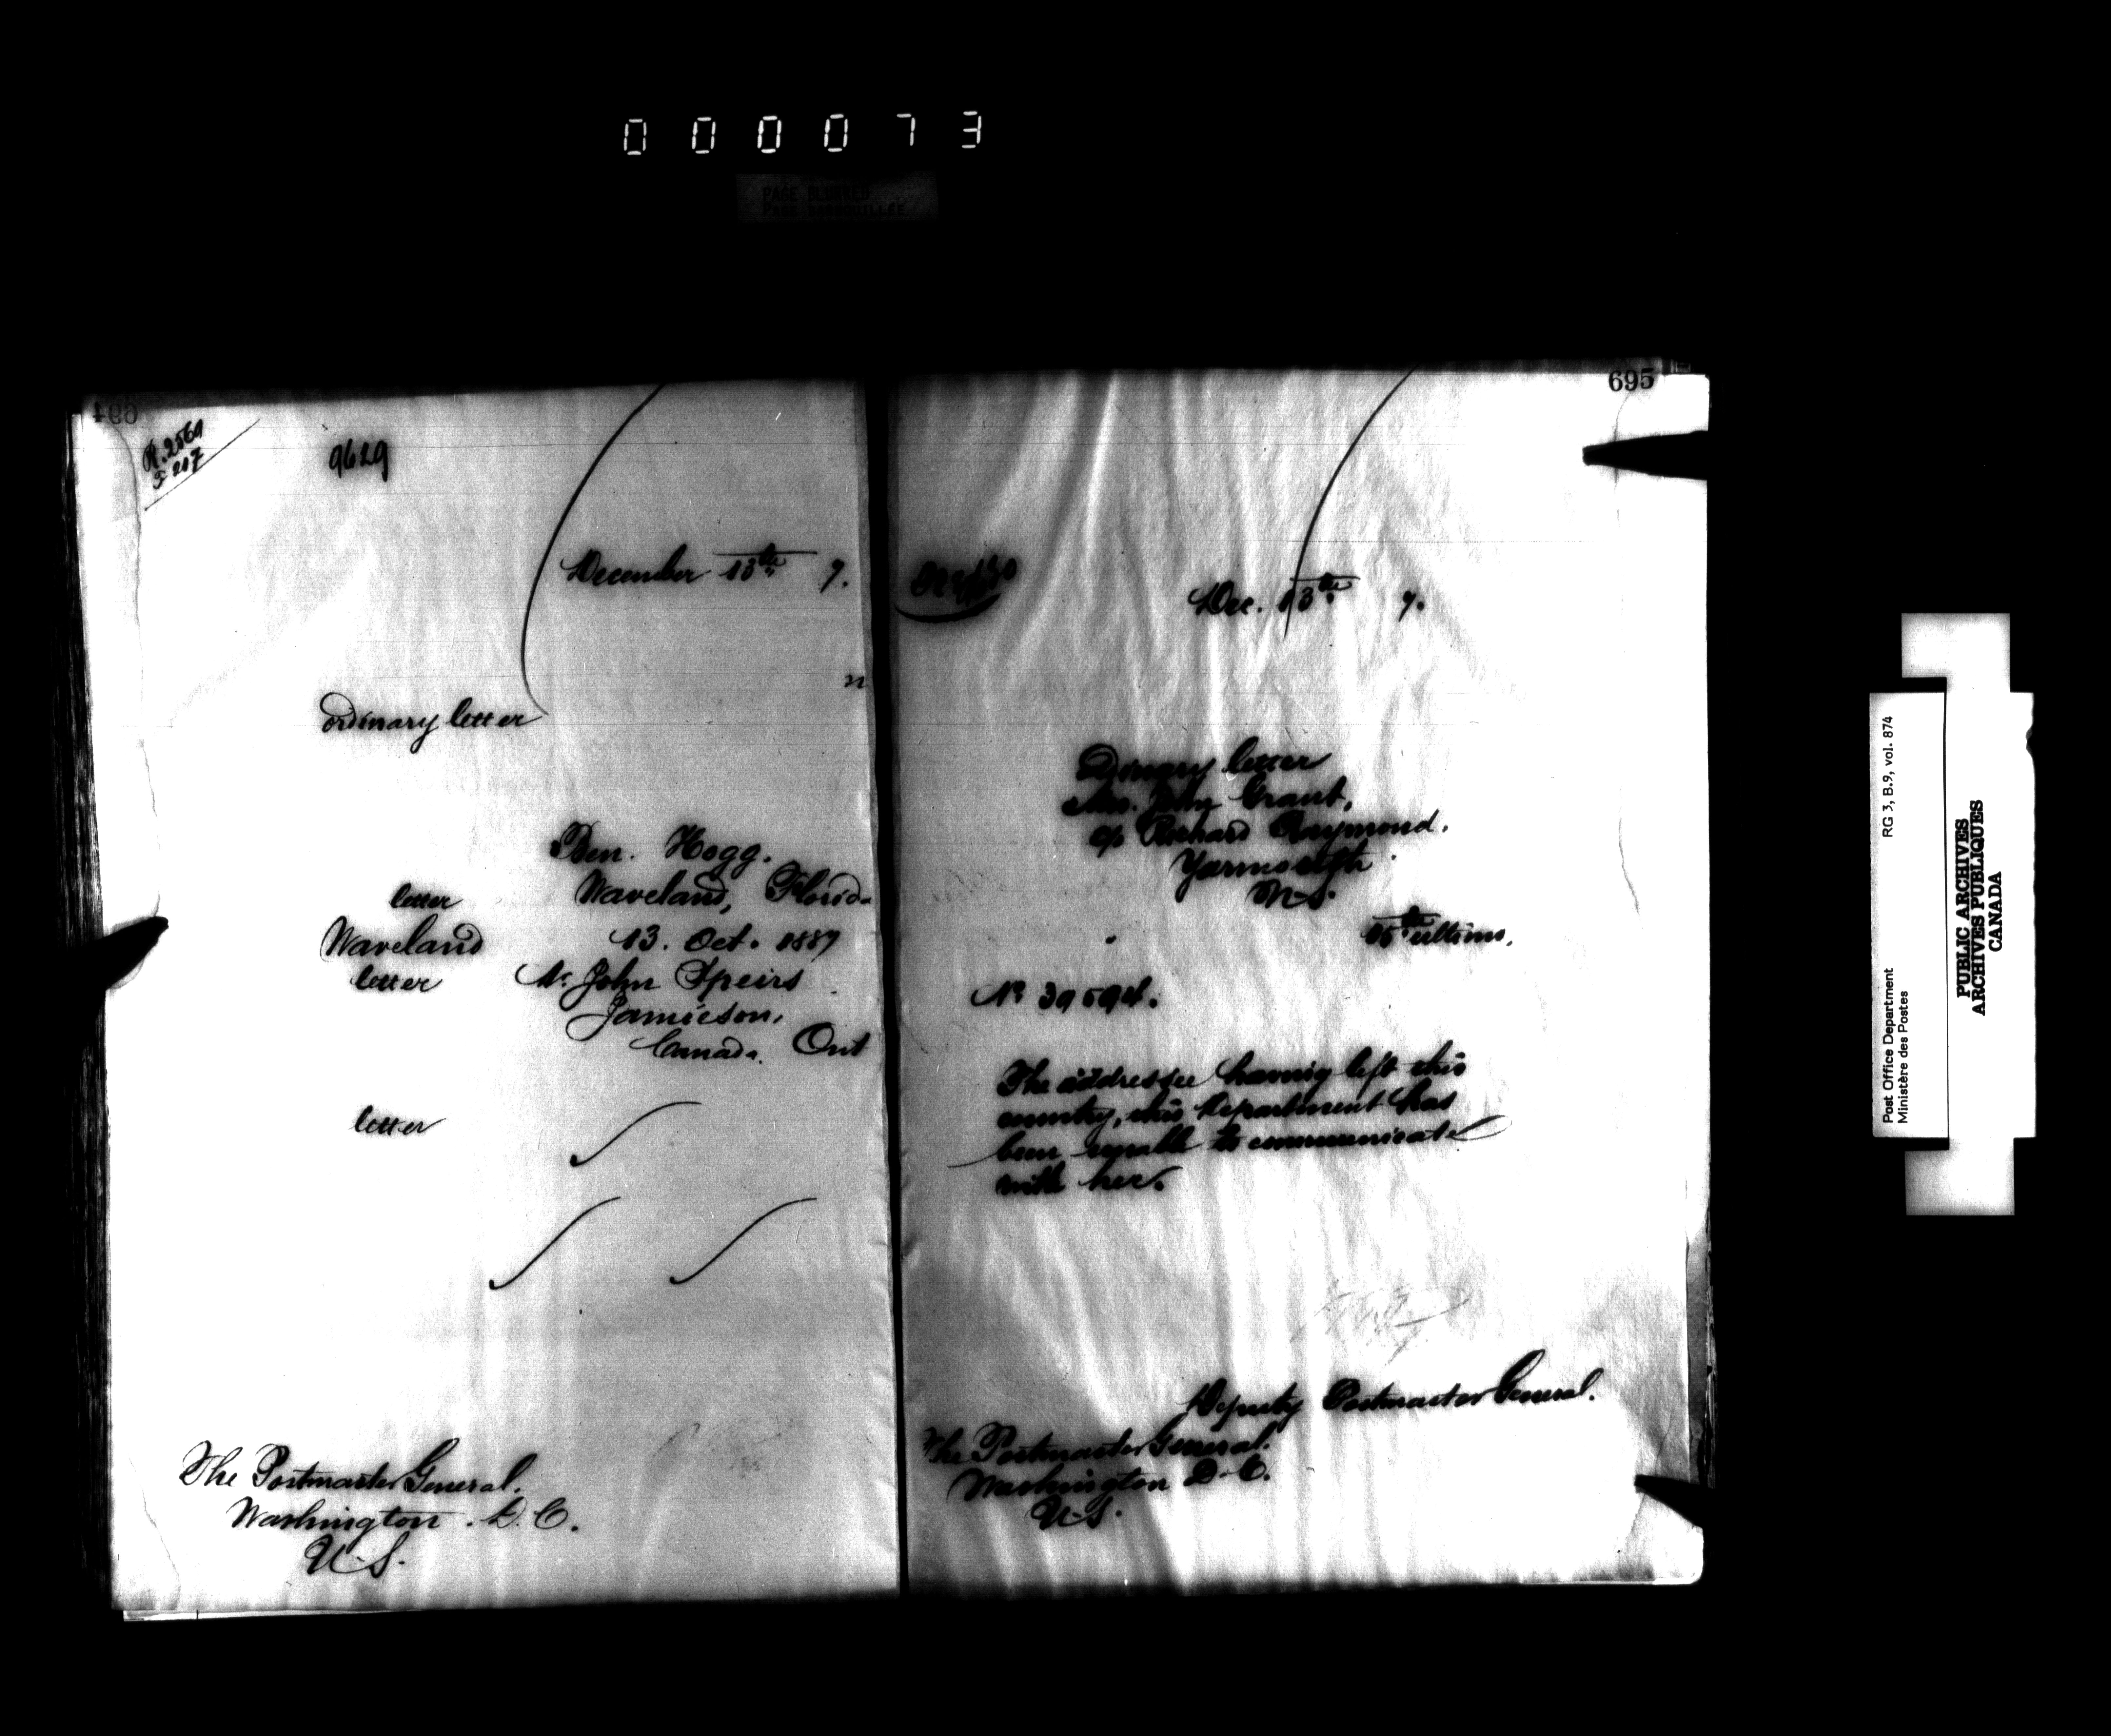 0 0 0 0 7 3
PAGE BLURRED
PAGE
694
R. 2561
F 207
9629
December 13th 7.
n
ordinary letter
Ben. Hogg.
letter Waveland, Florida
Waveland 13. Oct. 1887
letter Mr. John Speirs
Jamieson,
Canada. Ont
letter
The Postmaster General.
Washington. D. C.
U.S.
695
Dec. 13th 7.
Ordinary letter
Mrs. Grant,
c/o Richard Raymond.
Yarmouth
N.S.
ultimo.
No 39594.
The addressee having left this
country, this Department has
been unable to communicate
with her.
Deputy Postmaster General.
The Postmaster General.
Washington D.C.
U.S.
Post Office Department RG 3, B.9, vol. 874
Ministère des Postes
PUBLIC ARCHIVES
ARCHIVES PUBLIQUES
CANADA